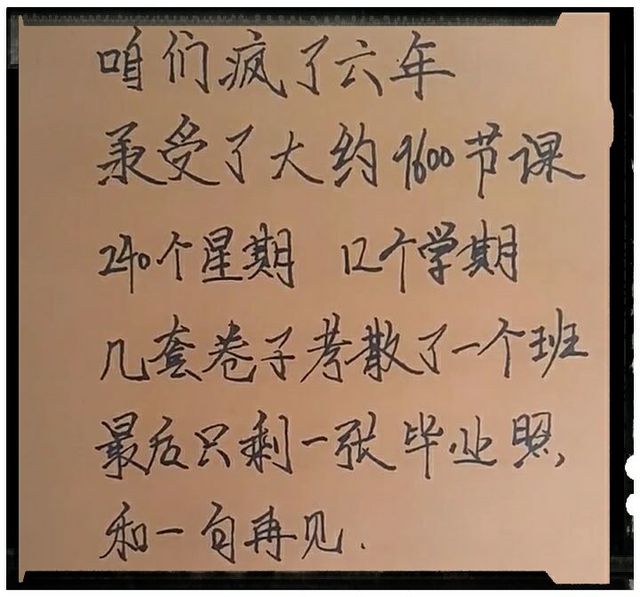 咱们疯了六年
承受了大约9600节课
240个星期 12个学期
几套卷子考散了一个班
最后只剩一张毕业照,
和一句再见.